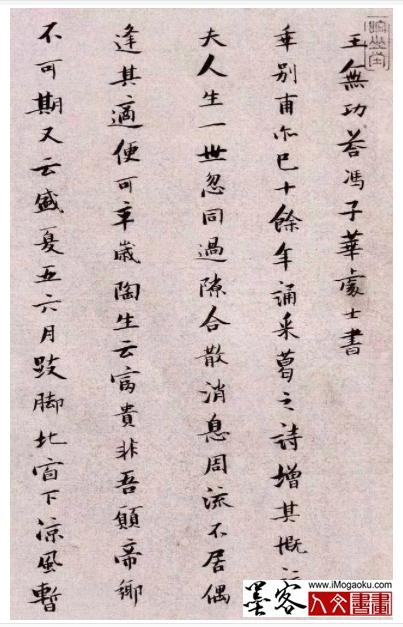 王無功荅馮子華處士書
乖別甫尔已十餘年誦采葛之詩增其慨
夫人生一世忽同過隙合散消息周流不居偶
逢其適便可卒歲陶生云富貴非吾願帝鄉
不可期又云盛夏五六月跂脚北窗下涼風暫
墨客
www.iMogaoku.com
人文書畫